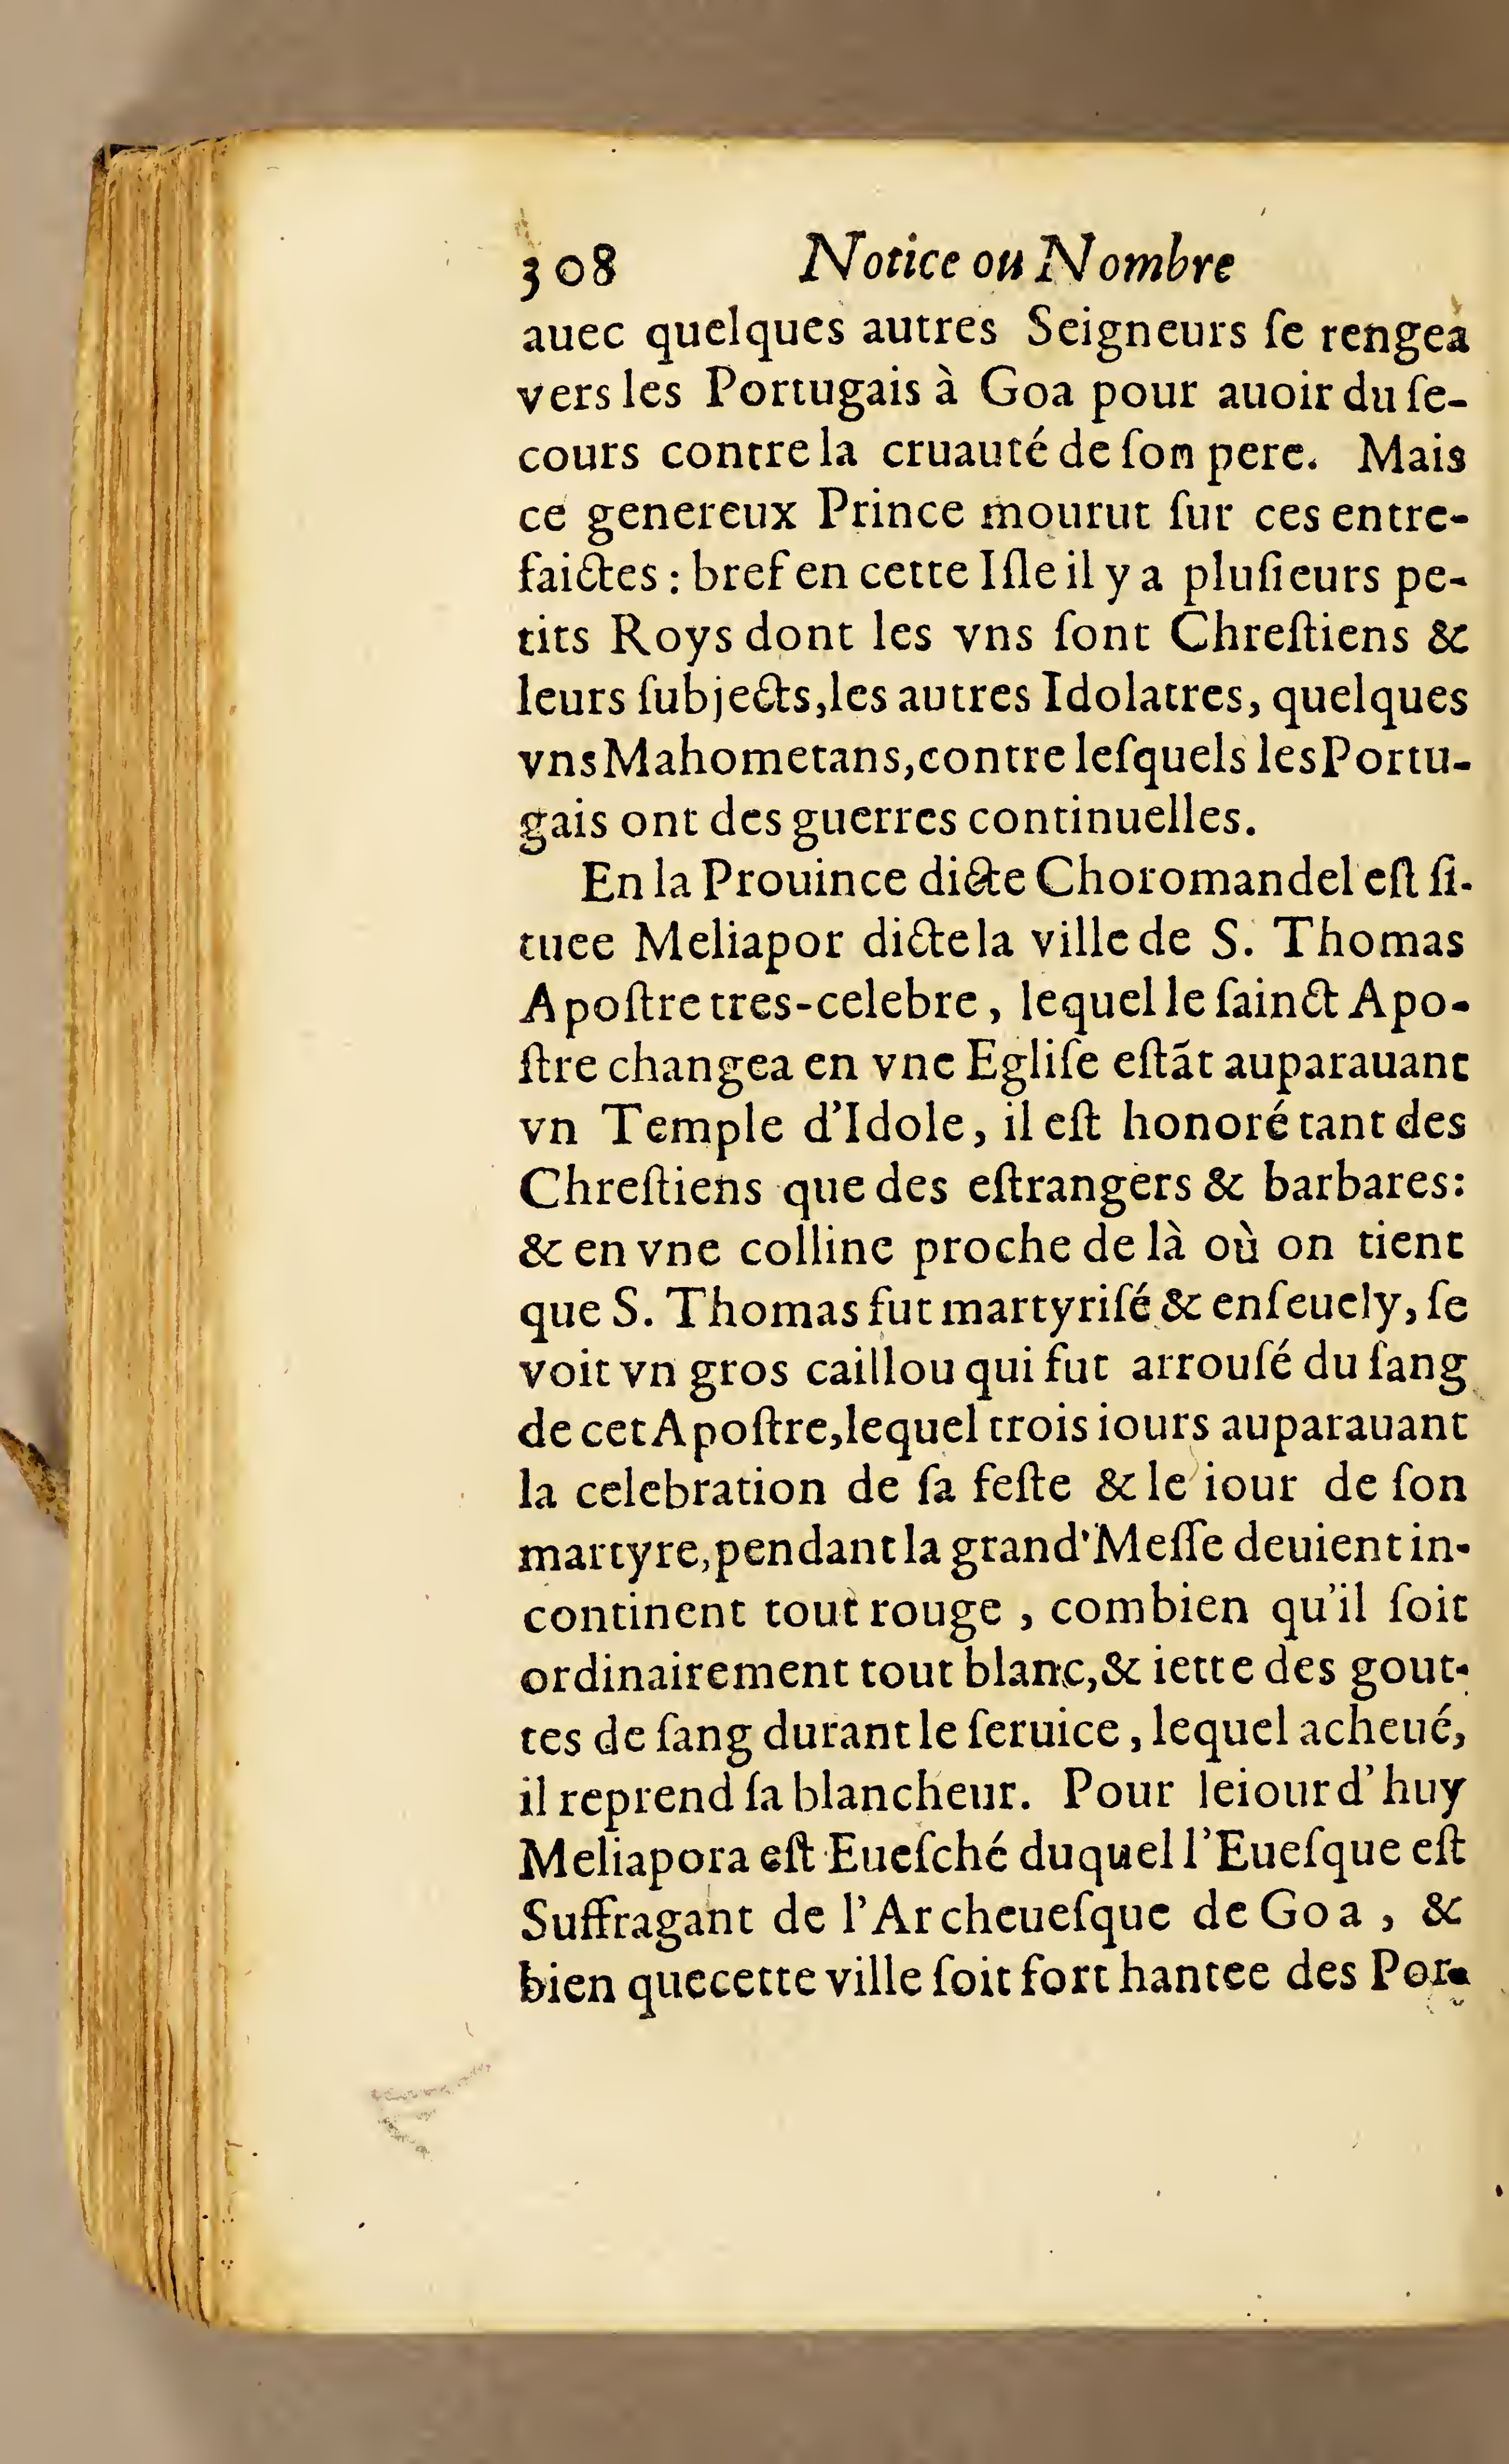 308 Notice ou Nombre
auec quelques autres Seigneurs ſe rengea
vers les Portugais à Goa pour auoir du ſe-
cours contre la cruauté de ſon pere. Mais
ce genereux Prince mourut ſur ces entre-
faictes : bref en cette Iſle il y a pluſieurs pe-
tits Roys dont les vns ſont Chreſtiens &
leurs ſubjects, les autres Idolatres, quelques
vns Mahometans, contre leſquels les Portu-
gais ont des guerres continuelles.
En la Prouince dicte Choromandel eſt ſi-
tuee Meliapor dicte la ville de S. Thomas
Apoſtre tres-celebre, lequel le ſainct Apo-
ſtre changea en vne Egliſe eſtãt auparauant
vn Temple d'Idole, il eſt honoré tant des
Chreſtiens que des eſtrangers & barbares:
& en vne colline proche de là où on tient
que S. Thomas fut martyriſé & enſeuely, ſe
voit vn gros caillou qui fut arrouſé du ſang
de cet Apoſtre, lequel trois iours auparauant
la celebration de ſa feſte & le iour de ſon
martyre, pendant la grand'Meſſe deuient in-
continent tout rouge, combien qu'il ſoit
ordinairement tout blanc, & iette des gout-
tes de ſang durant le ſeruice, lequel acheué,
il reprend ſa blancheur. Pour leiourd'huy
Meliapora eſt Eueſché duquel l'Eueſque eſt
Suffragant de l'Archeueſque de Goa, &
bien que cette ville ſoit fort hantee des Por-